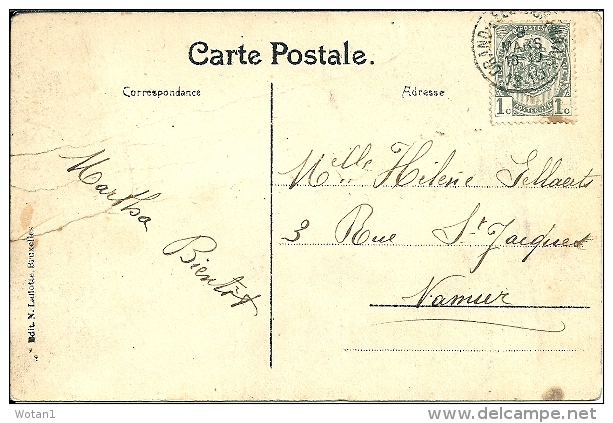 Carte Postale.
Correspondance
Adresse
1c 1c
MARS
Martha
Bientôt
Mlle Hélène
3 Rue St Jacques
Namur
Edit. N. Laflotte, Bruxelles
Wotan1
www.delcampe.net